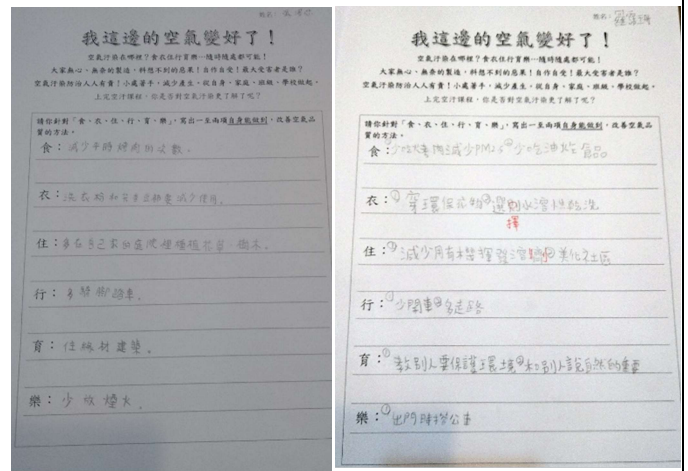 姓名：
我這邊的空氣變好了！
空氣汙染在哪裡？食衣住行育樂…隨時隨處都可能！
大家無心、無奈的製造，料想不到的惡果！自作自受！最大受害者是誰？
空氣汙染防治人人有責！小處著手，減少產生，從自身、家庭、班級、學校做起。
上完空汙課程，你是否對空氣汙染更了解了呢？
請你針對「食、衣、住、行、育、樂」，寫出一至兩項自身能做到，改善空氣品
質的方法。
食：減少平時烤肉的次數。
衣：洗衣精和
減少使用。
住：多在自己家的庭院裡種植花草、樹木。
行：多騎腳踏車。
育：住綠材建築。
樂：少放煙火。
姓名：羅
我這邊的空氣變好了！
空氣汙染在哪裡？食衣住行育樂…隨時隨處都可能！
大家無心、無奈的製造，料想不到的惡果！自作自受！最大受害者是誰？
空氣汙染防治人人有責！小處著手，減少產生，從自身、家庭、班級、學校做起。
上完空汙課程，你是否對空氣汙染更了解了呢？
請你針對「食、衣、住、行、育、樂」，寫出一至兩項自身能做到，改善空氣品
質的方法。
食：①少吃燒烤減少PM2.5②少吃油炸食品
衣：①穿環保衣物②選別水溶性乾洗
擇
住：①減少用有機揮發溶劑②美化社區
行：①少開車②多走路
育：①教別人要保護環境②和別人說自然的重要
樂：①出門時搭公車